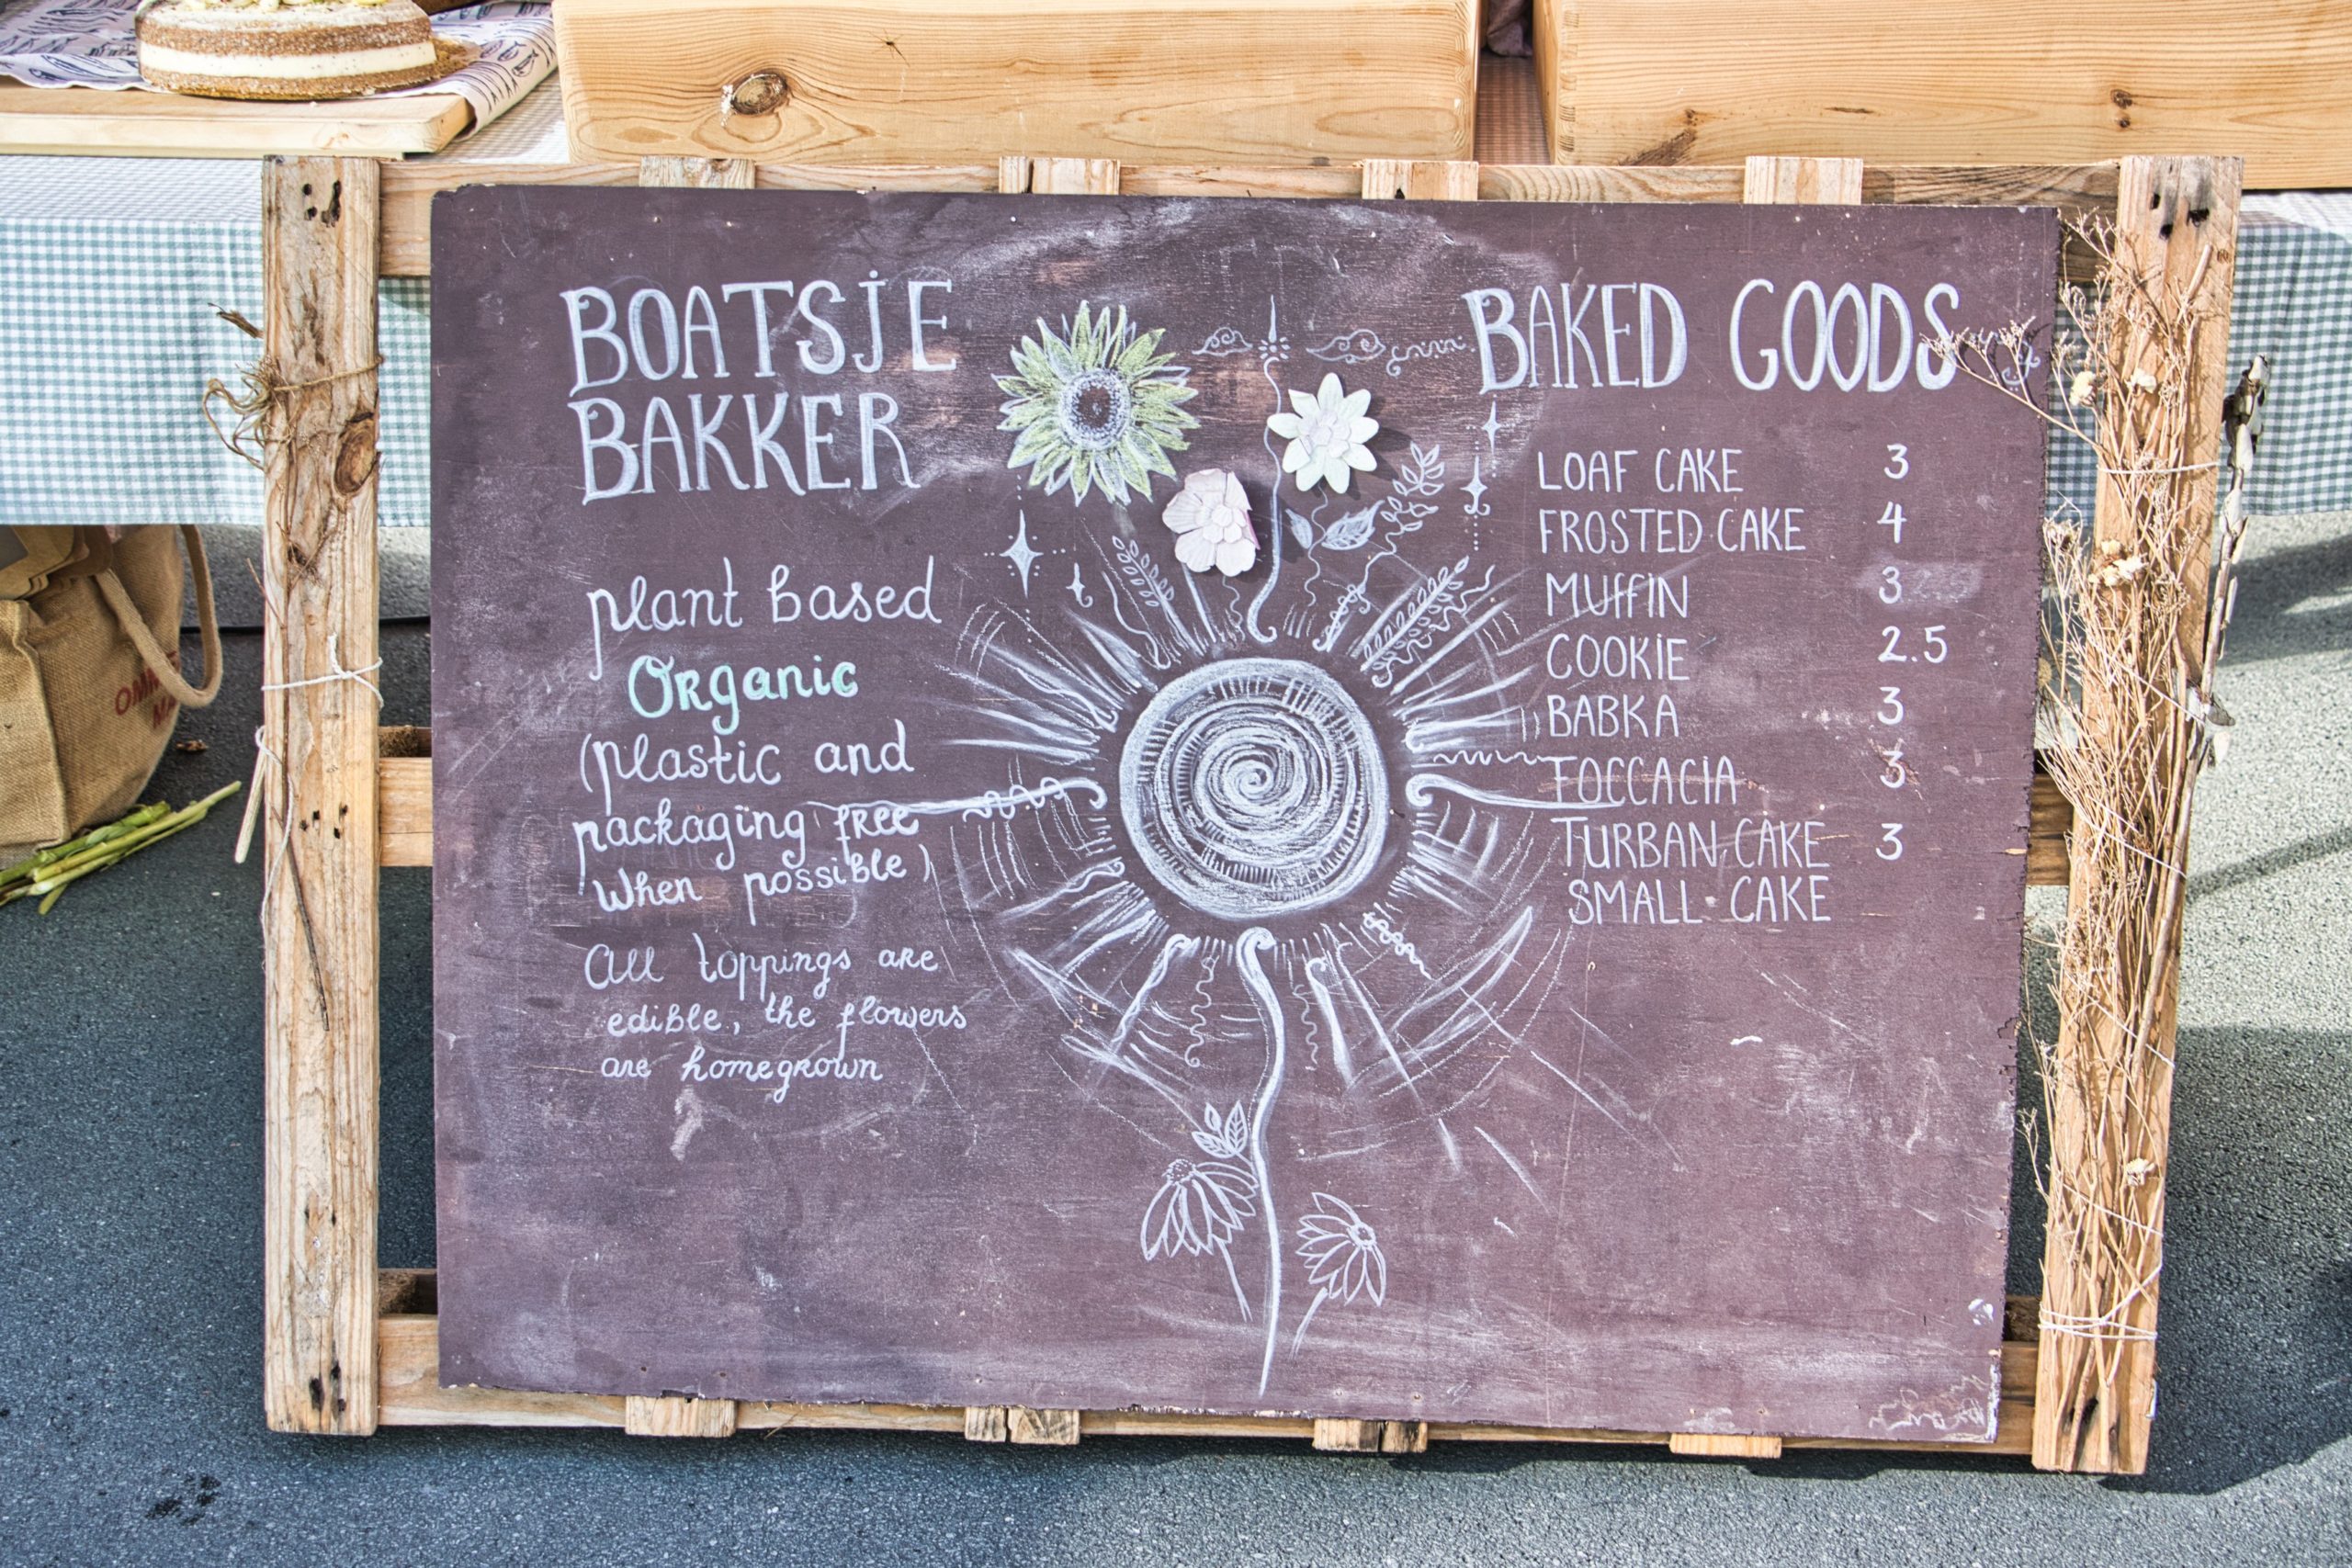 BOATSJE
BAKKER
plant based
Organic
(plastic and
packaging free
When possible)
All toppings are
edible, the flowers
are homegrown
BAKED GOODS
LOAF CAKE 3
FROSTED CAKE 4
MUFFIN 3
COOKIE 2.5
BABKA 3
FOCCACIA 3
TURBAN CAKE 3
SMALL CAKE